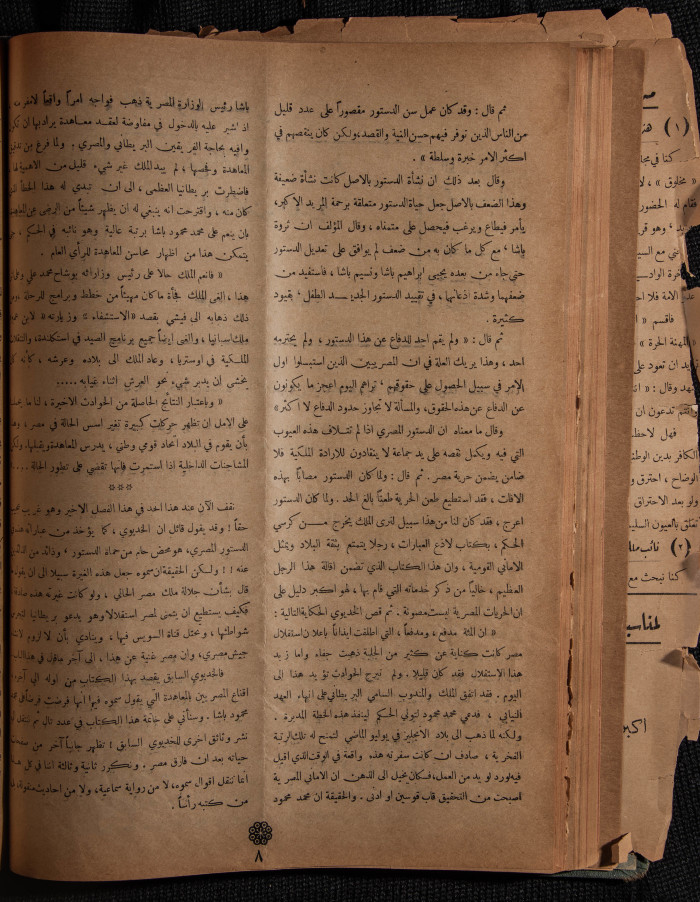 ثم قال : وقد كان عمل سن الدستور مقصوراً على عدد قليل
من الناس الذين توفر فيهم حسن النية والقصد، ولكن كان ينقصهم في
اكثر الامر خبرة وسلطة » .
وقال بعد ذلك ان نشأة الدستور بالاصل كانت نشأة ضعيفة
وهذا الضعف بالاصل جعل حياة الدستور متعلقة برحمة المريد الاكبر،
يأمر فيطاع ويرغب فيحصل على متمناه ، وقال المؤلف ان ثروة
باشا ' مع كل ما كان به من ضعف لم يوافق على تعديل الدستور
حتى جاء من بعده يحيى ابراهيم باشا ونسيم باشا ، فاستفيد من
ضعفهما وشدة اذعانهما ، في تقييد الدستور الجديد الطفل ' بقيود
كثيرة .
ثم قال : « ولم يقم احد للدفاع عن هذا الدستور ، ولم يحترمه
احد ، وهذا يريك العلة في ان المصريين الذين استبسلوا اول
الامر في سبيل الحصول على حقوقهم ' تراهم اليوم اعجز ما يكونون
عن الدفاع عن هذه الحقوق، والمسألة لا تجاوز حدود الدفاع لا اكثر»
وقال ما معناه ان الدستور المصري اذا لم تتلاف هذه العيوب
التي فيه ويكمل نقصه على يد جماعة لا ينقادون للارادة الملكية فلا
ضامن يضمن حرية مصر . ثم قال : ولما كان الدستور مصاباً بهذه
الآفات ، فقد استطيع طعن الحرية طعناً بالغ الحد . ولما كان الدستور
اعرج ، فقد كان لنا من هذا سبيل لنرى الملك يخرج من كرسي
الحكم ، بكتاب لاذع العبارات ، رجلا يتمتع بثقة البلاد ويمثل
الاماني القومية ، وان هذا الكتاب الذي تضمن اقالة هذا الرجل
العظيم ، خالياً من ذكر خدماته التي قام بها ، لهو اكبر دليل على
ان الحريات المصرية ليست مصونة . ثم قص الخديوي الحكاية التالية :
« ان المئة مدفع ، ومدفعاً ، التي اطلقت ايذاناً باعلان استقلال
مصر كانت كناية عن كثير من الجلبة ذهبت جفاء وما زيد
هذا الاستقلال فقد كان قليلا . ولم تبرح الحوادث تؤيد هذا الى
اليوم . فقد اتفق الملك والمندوب السامي البريطاني على انهاء العهد
النيابي ، فدعي محمد محمود لتولي الحكم لينفذ هذه الخطة المدبرة .
ولكنه لما ذهب الى بلاد الانجليز في يوليو الماضي لتمنح له تلك الرتبة
الفخرية ، صادف ان كانت سفرته هذه واقعة في الوقت الذي اقيل
فيه لورد لويد من العمل، فكان يخيل الى الذهن ان الاماني المصرية
اصبحت من التحقيق قاب قوسين او ادنى . والحقيقة ان محمد محمود
باشا رئيس الوزارة المصرية ذهب فواجه امراً واقعاً
اذ اشير عليه بالدخول في مفاوضة لعقد معاهدة يراد بها ان تكون
وافيه بحاجة الفريقين البريطاني والمصري . ولما فرغ من تدقيق
المعاهدة وفحصها ، لم يبد الملك غير شيء قليل من الاهمية لها
فاضطرت بريطانيا العظمى ، الى ان تبدي له هذا الخطأ الذي
كان منه ، واقترحت انه ينبغي له ان يظهر شيئاً من الرضى عن المعاهدة
بان ينعم على محمد محمود باشا برتبة عالية وهو نائبه في الحكم ،
يتمكن هذا من اظهار محاسن المعاهدة للرأي العام .
« فانعم الملك حالا على رئيس وزارائه بوشاح محمد علي وعلى
هذا ، الغى الملك فجأة ما كان مهيئاً من خطط وبرامج للرحلة
ذلك ذهابه الى فيشي بقصد « الاستشفاء » وزيارته
ملك اسبانيا ، والغى ايضاً جميع برنامج الصيد في اسكتلندة،
الملكية في اوستريا ، وعاد الملك الى بلاده وعرشه ، كأنه
يخشى ان يدبر شيء نحو العرش اثناء غيابه .....
« وباعتبار النتائج الحاصلة من الحوادث الاخيرة ، لنا ما يحملنا
على الامل ان تظهر حركات كبيرة تغير اسس الحالة في مصر ،
بأن يقوم في البلاد اتحاد قومي وطني ، يدرس المعاهدة ويقبلها، ولكن
المشاحنات الداخلية اذا استمرت فانها تقضي على تطور الحالة ....
***
نقف الآن عند هذا الحد في هذا الفصل الاخير وهو غريب
حقاً ! وقد يقول قائل ان الخديوي ، كما يؤخذ من عباراته
الدستور المصري، هو محض حام من حماة الدستور ' وذائد من الذائدين
عنه !! ولكن الحقيقة ان سموه جعل هذه الغيرة سبيلا الى ان يقول
قال بشأن جلالة ملك مصر الحالي ، ولو كانت غيرته هذه صادقة
فكيف يستطيع ان يتمنى لمصر استقلالا وهو يدعو بريطانيا لتحمي
شواطئها ، وتحتل قناة السويس فيها ، وينادي بأن لا لزوم لانشاء
جيش مصري، وان مصر غنية عن هذا ، الى آخر ما قال في هذا الباب
فالخديوي السابق يقصد بهذا الكتاب من اوله الى آخره
اقناع المصريين بالمعاهدة التي يقول سموه فيها انها فرضت فرضاً على
محمود باشا . وسنأتي على خاتمة هذا الكتاب في عدد تال ثم ننتقل
نشر وثائق اخرى للخديوي السابق ! تظهر جانباً آخر من صفحة
حياته بعد ان فارق مصر . ونكرر ثانية وثالثة اننا في كل هذا
انما ننقل اقوال سموه، لا من رواية سماعية، ولا من احاديث منقولة،
من كتبه رأساً .
٨
(١)
(٢)